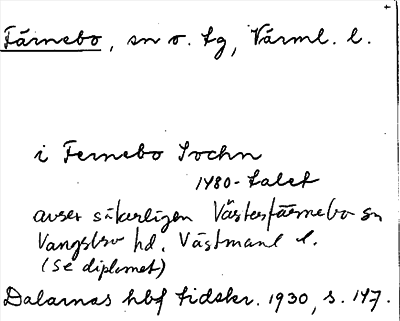 Färnebo, sn o. tg, Värml. l.
i Fernebo Sochn
1480-talet
avser säkerligen Västerfärnebo sn
Vangsbro hd. Västmanl l.
(Se diplomet)
Dalarnas hbf tidskr. 1930, s. 147.